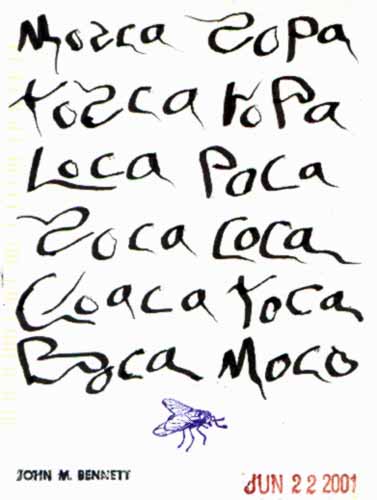 Mosca Sopa
Tosca ropa
Loca Poca
Soca Coca
Cloaca Toca
Moco
JOHN M. BENNETT
JUN 22 2001